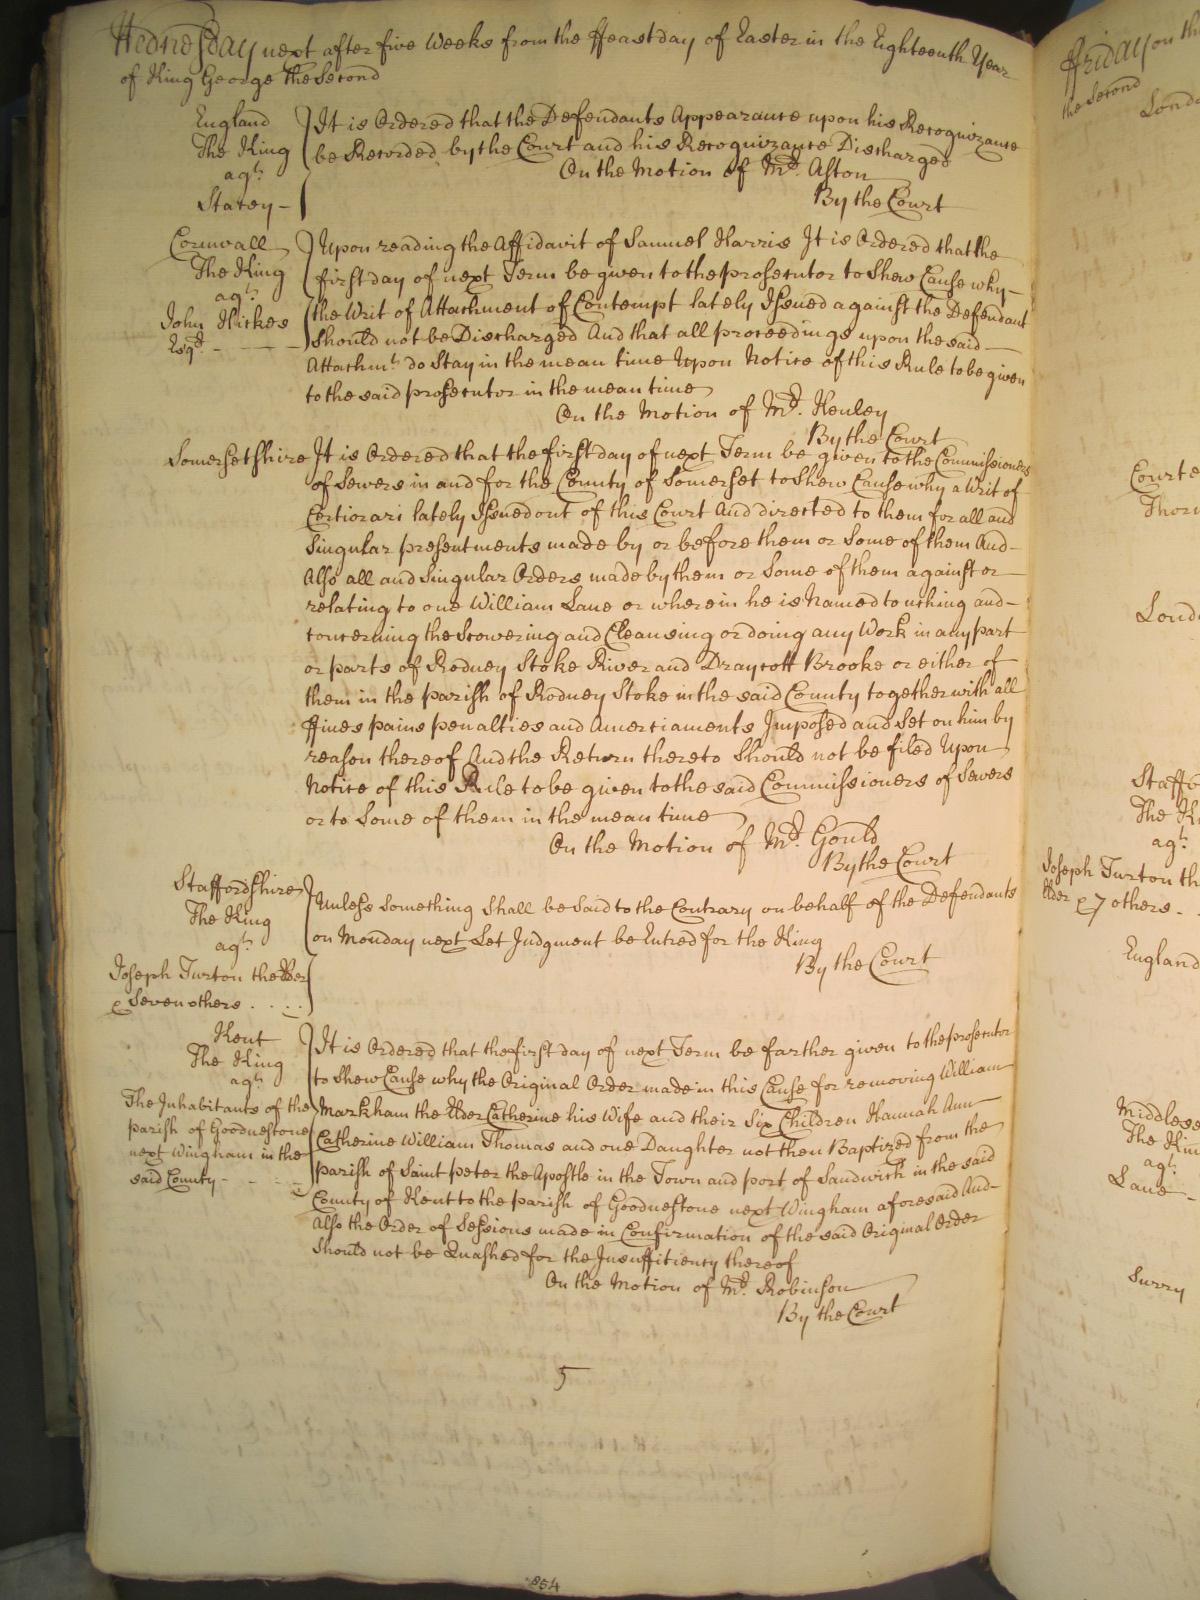 Wednesday next after five Weeks from the ffeast day of Easter in the Eighteenth Year
of King George the Second
England
The King
agt.
Stacey -
It is Ordered that the Defendants Appearance upon his Recognizance
be Recorded by the Court and his Recognizance Discharged
On the Motion of Mr. Aston
By the Court
Cornwall
The King
agt.
John Hickes
Esqr. - - -
Upon reading the Affidavit of Samuel Harris It is Ordered that the
first day of next Term be given to the prosecutor to Shew Cause why
the Writ of Attachment of Contempt lately Issued against the Defendant
Should not be Discharged And that all proceedings upon the said
Attachmt. do Stay in the mean time Upon Notice of this Rule to be given
to the said prosecutor in the mean time
On the Motion of Mr. Henley
By the Court
Somersetshire
It is Ordered that the first day of next Term be given to the Commissioners
of Sewers in and for the County of Somerset to Shew Cause why a Writ of
Certiorari lately Issued out of this Court And directed to them for all and
Singular presentments made by or before them or Some of them And
Also all and Singular Orders made by them or Some of them against or
relating to one William Lane or wherein he is Named touching and
concerning the Scowering and Cleansing or doing any Work in any part
or parts of Rodney Stoke River and Draycott Brooke or either of
them in the parish of Rodney Stoke in the said County together with all
ffines pains penalties and Amerciaments Imposed and Set on him by
reason thereof And the Return thereto Should not be filed Upon
Notice of this Rule to be given to the said Commissioners of Sewers
or to Some of them in the mean time
On the Motion of Mr. Gould
By the Court
Staffordshire
The King
agt.
Joseph Turton the Elder
& Seven others . . . .
Unless Something Shall be Said to the Contrary on behalf of the Defendants
on Monday next Let Judgment be Entred for the King
By the Court
Kent
The King
agt.
The Inhabitants of the
parish of Goodnestone
next Wingham in the
said County - - - -
It is Ordered that the first day of next Term be farther given to the prosecutor
to Shew Cause why the Original Order made in this Cause for removing William
Markham the Elder Catherine his Wife and their Six Children Hannah Ann
Catherine William Thomas and one Daughter not then Baptized from the
parish of Saint peter the Apostle in the Town and port of Sandwich in the said
County of Kent to the parish of Goodnestone next Wingham aforesaid And
Also the Order of Sessions made in Confirmation of the said Original Order
Should not be Quashed for the Insufficiency thereof
On the Motion of Mr. Robinson
By the Court
5
854
ffriday on the
the Second
Londo
Courte
Thorn
Londo
Staffo
The Ki
agt.
Joseph Turton th
Elder & 7 others - .
England
Middlese
The Kin
agt.
Lane -
Surry